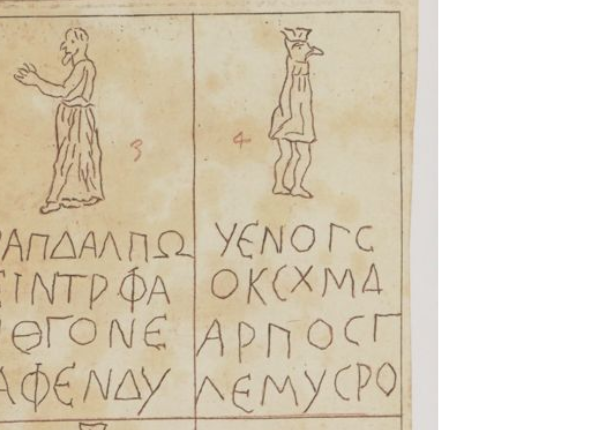 3
4
ΑΠΔΑΛΠΩ
ΙΝΤΡΦΑ
ΘΓΟΝΕ
ΑΦΕΝΔΥ
ΥΕΝΟΓϹ
ΟΚϹΧΜΔ
ΑΡΠΟϹΓ
ΛΕΜΥϹΡΟ